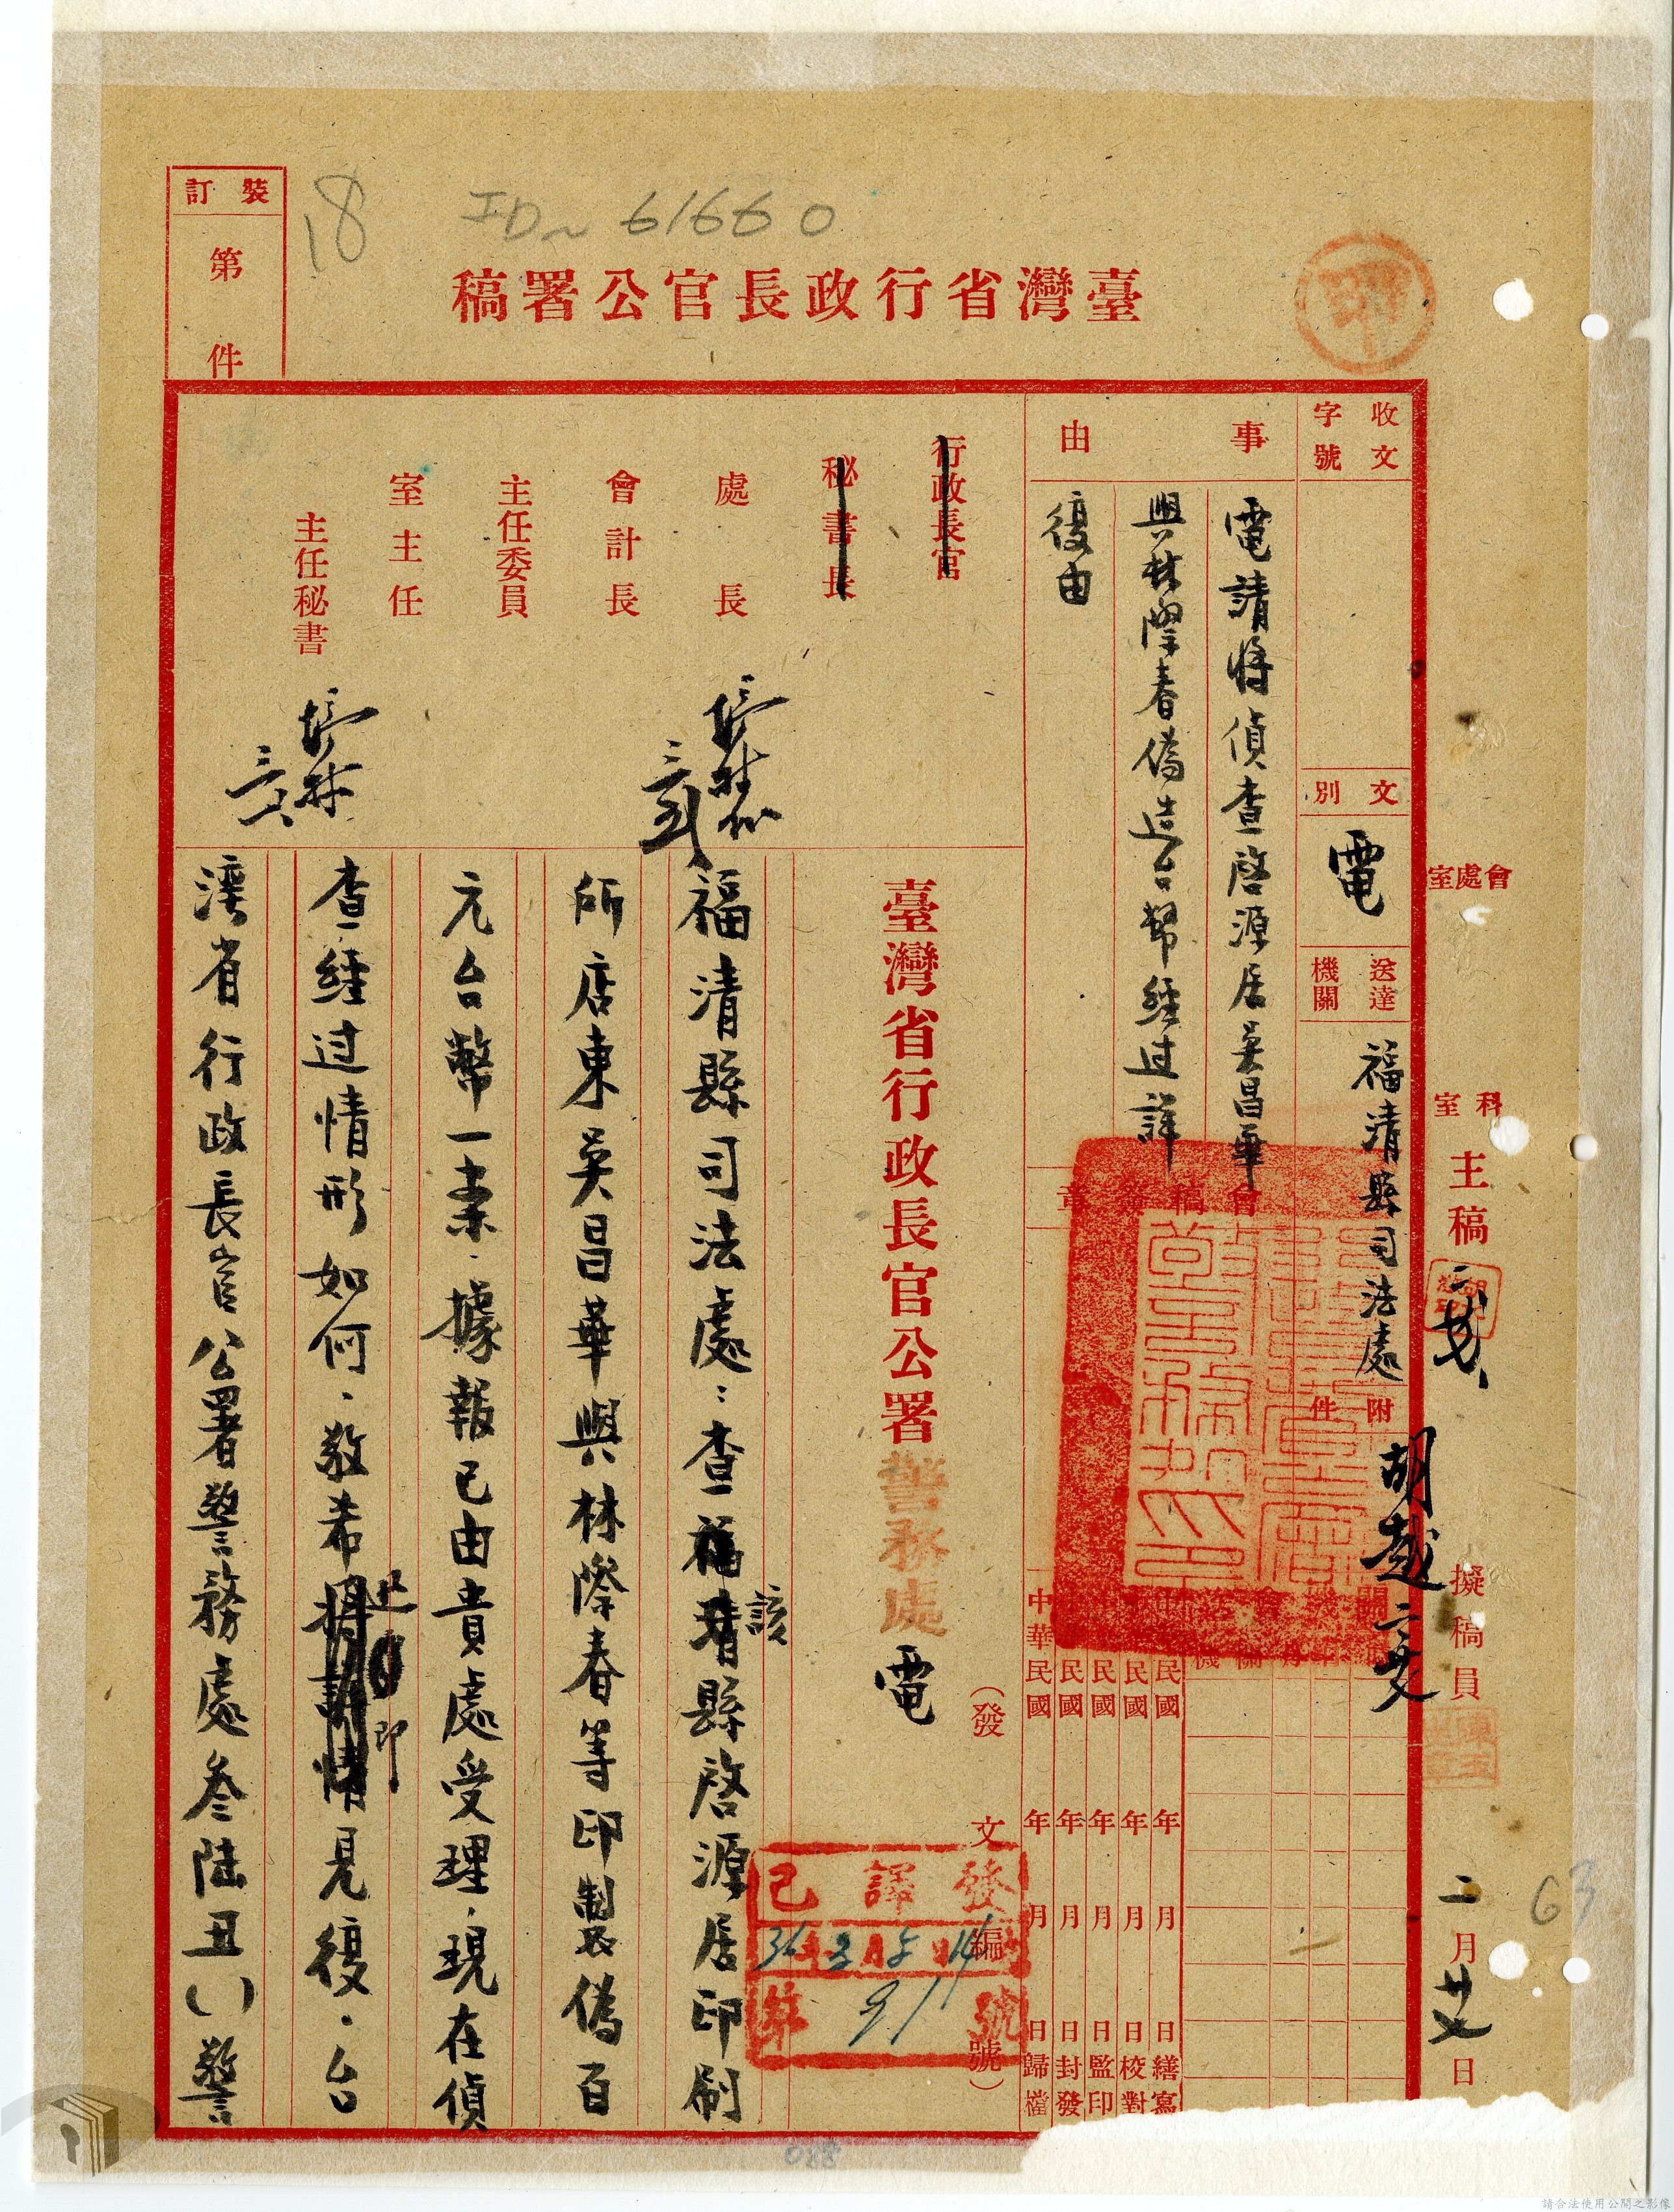 裝訂
第 件
18
ID~61660
臺灣省行政長官公署稿
印
收文
字號
文別
電
送達
機關
福清縣司法處
附件
事由
電請將偵查啓源居吳昌華
與林際春偽造台幣經过詳
復由
會處室
科室
主稿
胡越
擬稿員
二月廿七日
63
行政長官
秘書長
處長
會計長
主任委員
室主任
主任秘書
會稿簽章
民國 年 月 日繕寫
民國 年 月 日校對
民國 年 月 日監印
民國 年 月 日封發
中華民國 年 月 日歸檔
(發文編號)
發譯已
36年3月5日14
第91號
臺灣省行政長官公署警務處電
福清縣司法處:查福清該縣啓源居印刷
所店東吳昌華與林際春等印製偽百
元台幣一案,據報已由貴處受理,現在偵
查,經过情形如何,敬希迅即見復.台
灣省行政長官公署警務處叁陸丑()警
088
請合法使用公開之影像